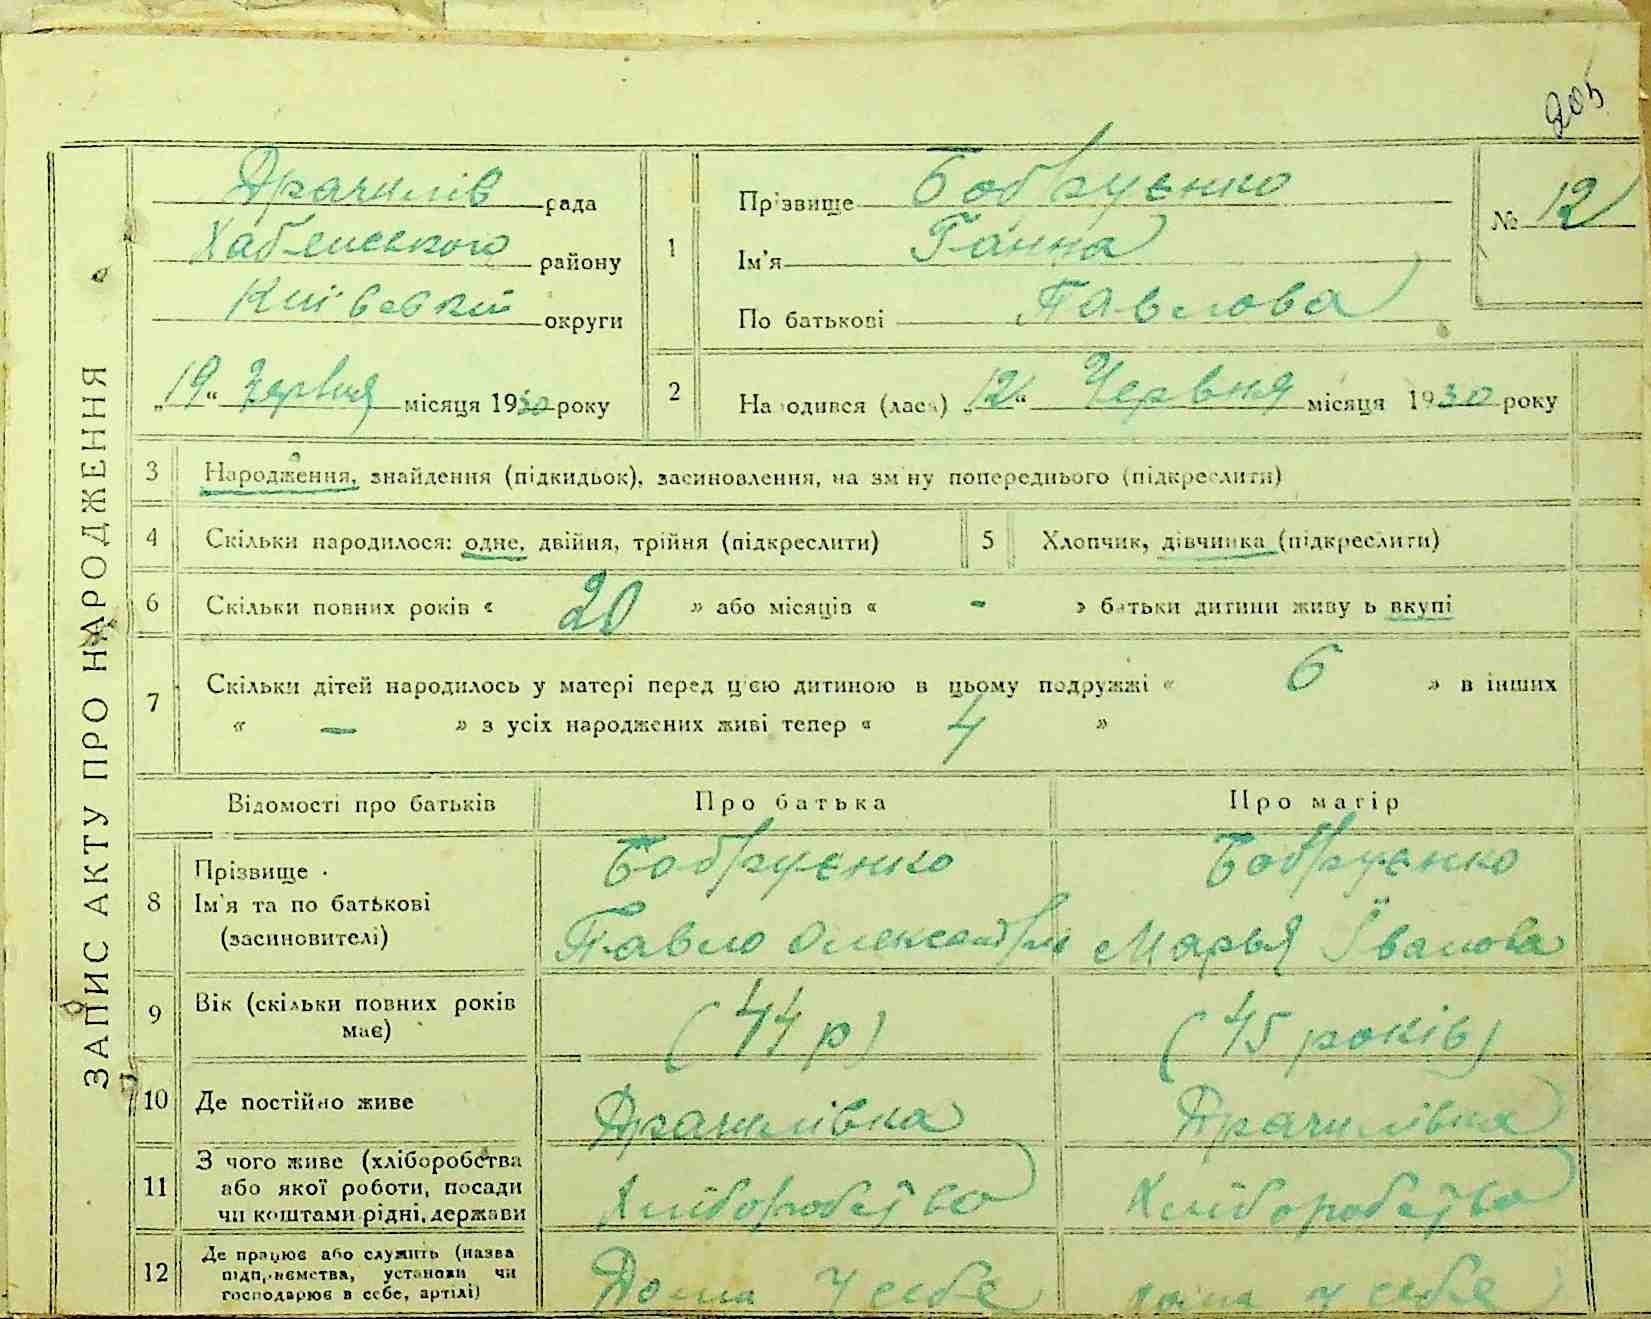 205
ЗАПИС АКТУ ПРО НАРОДЖЕННЯ
Драчилів рада
Хабенського району
Київській округи
„19“ Червня місяця 1930 року
1
Прізвище Бобруєнко
Ім'я Ганна
По батькові Павлова
№ 12
2
Народився (лася) „12“ Червня місяця 1930 року
3 Народження, знайдення (підкидьок), засиновлення, на зміну попереднього (підкреслити)
4 Скільки народилося: одне, двійня, трійня (підкреслити)
5 Хлопчик, дівчинка (підкреслити)
6 Скільки повних років « 20 » або місяців « - » батьки дитини живуть вкупі
7 Скільки дітей народилось у матері перед цією дитиною в цьому подружжі « 6 » в інших
« - » з усіх народжених живі тепер « 4 »
Відомості про батьків Про батька Про матір
8 Прізвище Бобруєнко Бобруєнко
Ім'я та по батькові Павло Олександр Марья Іванова
(засиновителі)
9 Вік (скільки повних років (44 р) (45 років)
має)
10 Де постійно живе Драчилівка Драчилівка
11 З чого живе (хліборобства Хліборобство Хліборобство
або якої роботи, посади
чи коштами рідні, держави
12 Де працює або служить (назва Дома у себе дома у себе
підприємства, установи чи
господарює в себе, артілі)